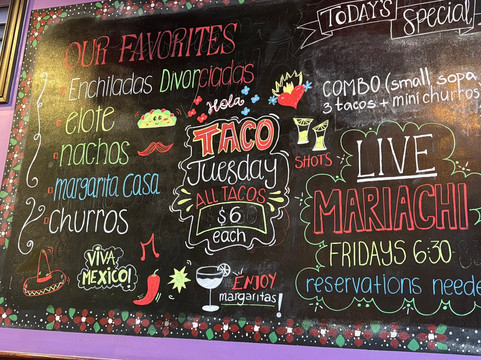 OUR FAVORITES
Enchiladas Divorciadas
elote
nachos
margarita casa
churros
VIVA
MEXICO!
Hola
TACO
Tuesday
ALL TACOS
$6
each
ENJOY
margaritas!
SHOTS
TODAY'S
Special
COMBO (small sopa
3 tacos + mini churros
LIVE
MARIACHI
FRIDAYS 6:30
reservations neede